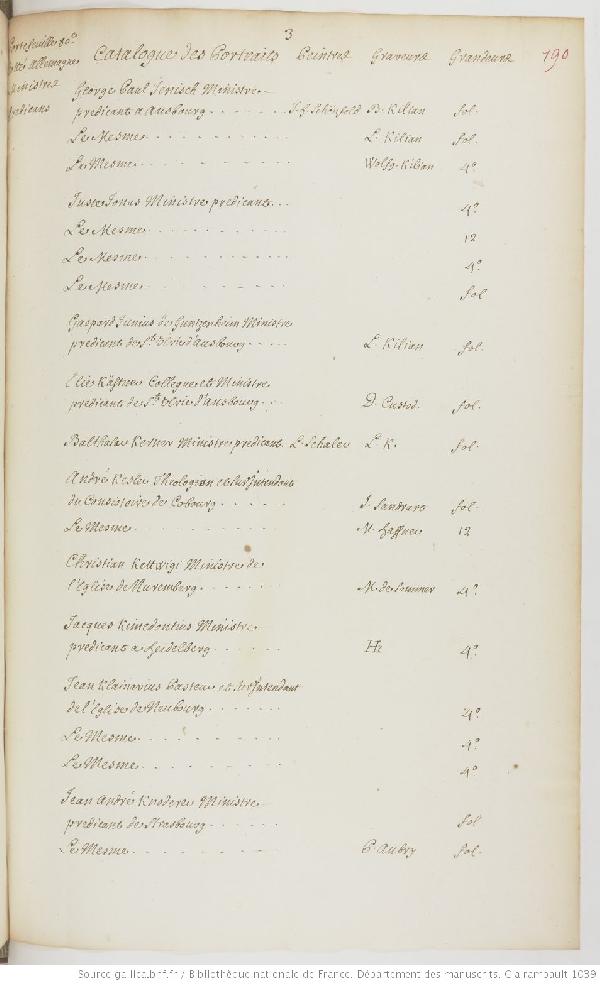 3
Portefeuille 80e
Catalogue des Portraits Peintre Graveure Grandeure 190
Allemagne
Ministre
predicans
George Paul Jenisch Ministre
predicant a Ausbourg . . . . . . . J. f. Schönfeld B. Kilian fol.
Le Mesme . . . . . . . . . L. Kilian fol.
Le Mesme . . . . . . . . . Wolfg. Kilian 4o
Juste Jonas Ministre predicant . . . 4o
Le Mesme . . . . . . . . . 12
Le Mesme . . . . . . . . . 4o
Le Mesme . . . . . . . . . fol
Gaspard Junius de Guntzenheim Ministre
predicant de St. Ulric d'Ausbourg . . . . L. Kilian fol.
Elie Käftner Collegue et Ministre
predicant de St. Ulric d'Ausbourg . . . D. Custod. fol.
Balthasar Kerner Ministre predicant L. Schaler L. K. fol.
André Kesler Theologien et Surjntendant
du Consistoire de Cobourg . . . . . . J. Sandrart fol.
Le Mesme . . . . . . . . . M. Haffner 12
Christian Kettwigi Ministre de
l'Eglise de Nuremberg . . . . . . M. de Sommer 4o
Jacques Kimedontius Ministre
predicant a Heidelberg . . . . . Hz 4o
Jean Klainovius Pasteur et Surjntendant
de l'Eglise de Neubourg . . . . . . 4o
Le Mesme . . . . . . . . . 4o
Le Mesme . . . . . . . . . 4o
Jean André Knoderer Ministre
predicant de Strasbourg . . . . . . fol.
Le Mesme . . . . . . . . . P. Aubry fol.
Source gallica.bnf.fr / Bibliothèque nationale de France. Département des manuscrits. Clairambault 1039